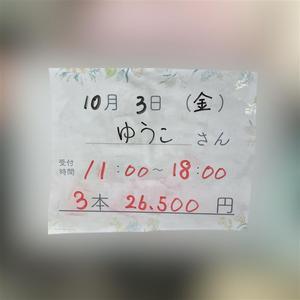 10月 3日 (金)
ゆうこ さん
受付時間 11:00~18:00
3本 26.500 円